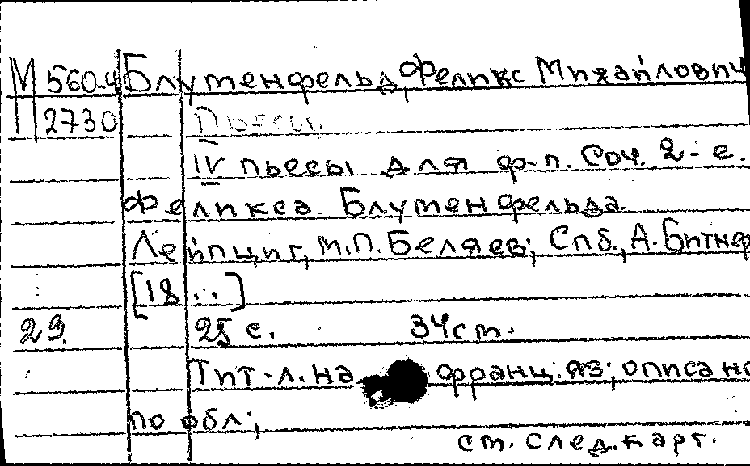 М 560-4 Блуменфельд, Феликс Михайлович
П 2730 Пьесы.
IV пьесы для ф-п. Соч. 2-е.
Феликса Блуменфельда.
Лейпциг, М.П. Беляев; Спб., А. Битнер
[18...]
29. 25 с. 34 см.
Тит-л. на франц. яз; описано
по обл;
см. след. карт.